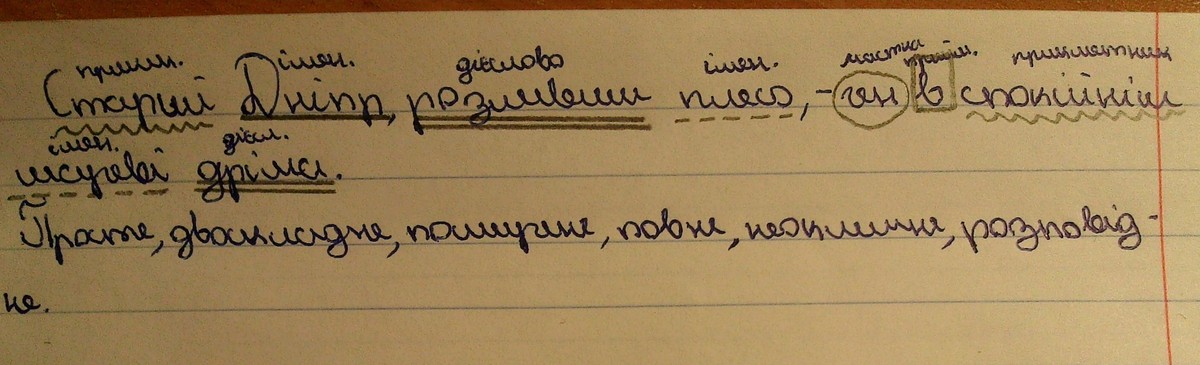 прикм. імен. дієслово імен. частка прийм. прикметник
Старий Дніпр, розливши плесо, - ген в спокійнім
імен. дієсл.
шумові дріма.
Просте, двоскладне, поширене, повне, неокличне, розповід-
не.